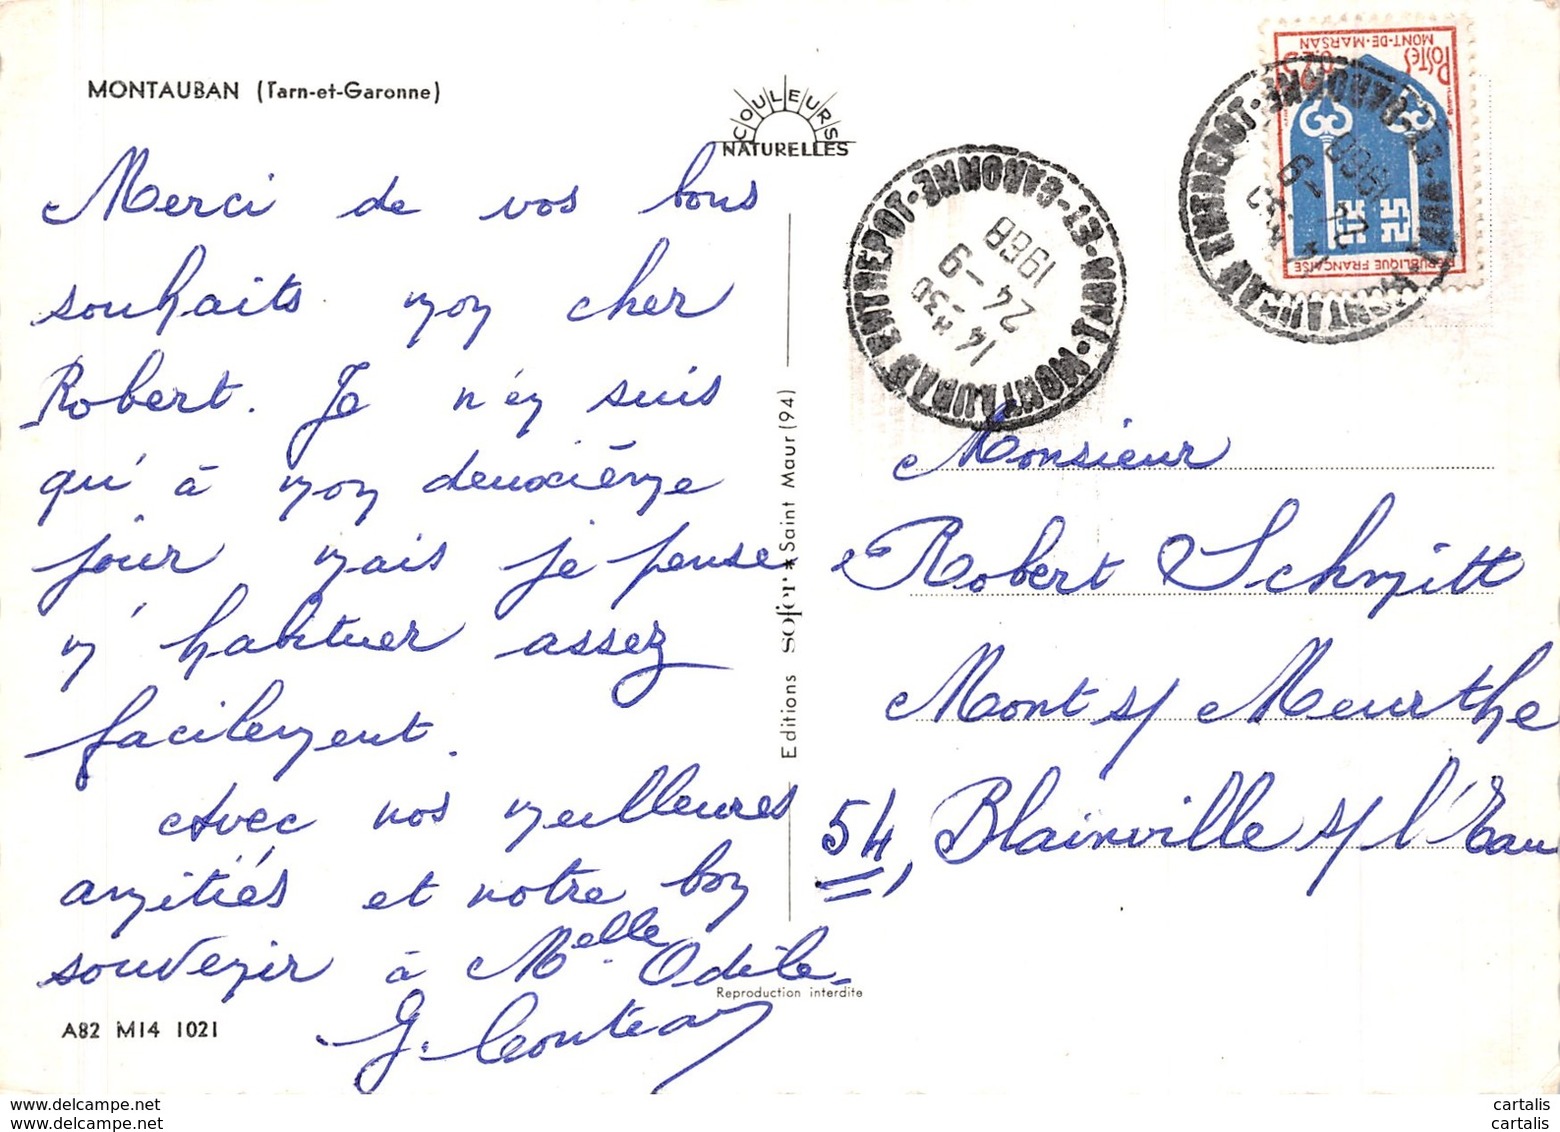 MONTAUBAN (Tarn-et-Garonne)
COULEURS
NATURELLES
Merci de vos bons
souhaits mon cher
Robert. Je n'en suis
qu'à mon deuxième
jour mais je pense
m'habituer assez
facilement.
Avec nos meilleures
amitiés et notre bon
souvenir à Melle Odile.
Reproduction interdite
A82 M14 1021
Editions sofer * Saint Maur (94)
MONTAUBAN ENTREPOT - TARN-ET-GARONNE
14 H 30
24 - 9
1968
POSTES
0,25
MONT-DE-MARSAN
REPUBLIQUE FRANÇAISE
MONTAUBAN ENTREPOT - TARN-ET-GARONNE
24 - 9
Monsieur
Robert Schmitt
Mont s/ Meurthe
54, Blainville s/ l'Eau
www.delcampe.net
www.delcampe.net
cartalis
cartalis